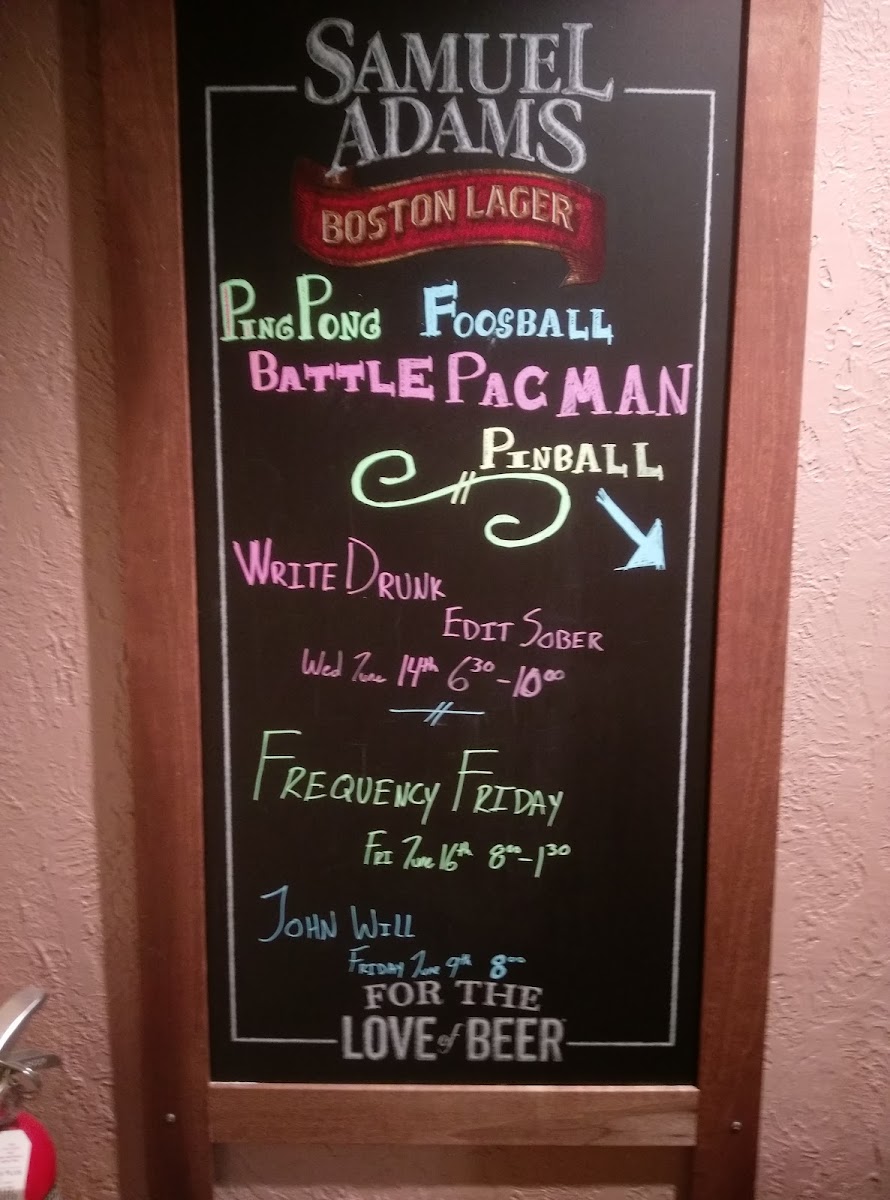 SAMUEL
ADAMS
BOSTON LAGER
PING PONG FOOSBALL
BATTLE PAC MAN
PINBALL
WRITE DRUNK
EDIT SOBER
Wed June 14th 6:30-10:00
FREQUENCY FRIDAY
FRI June 16th 8:00-1:30
JOHN WILL
FRIDAY June 9th 8:00
FOR THE
LOVE of BEER